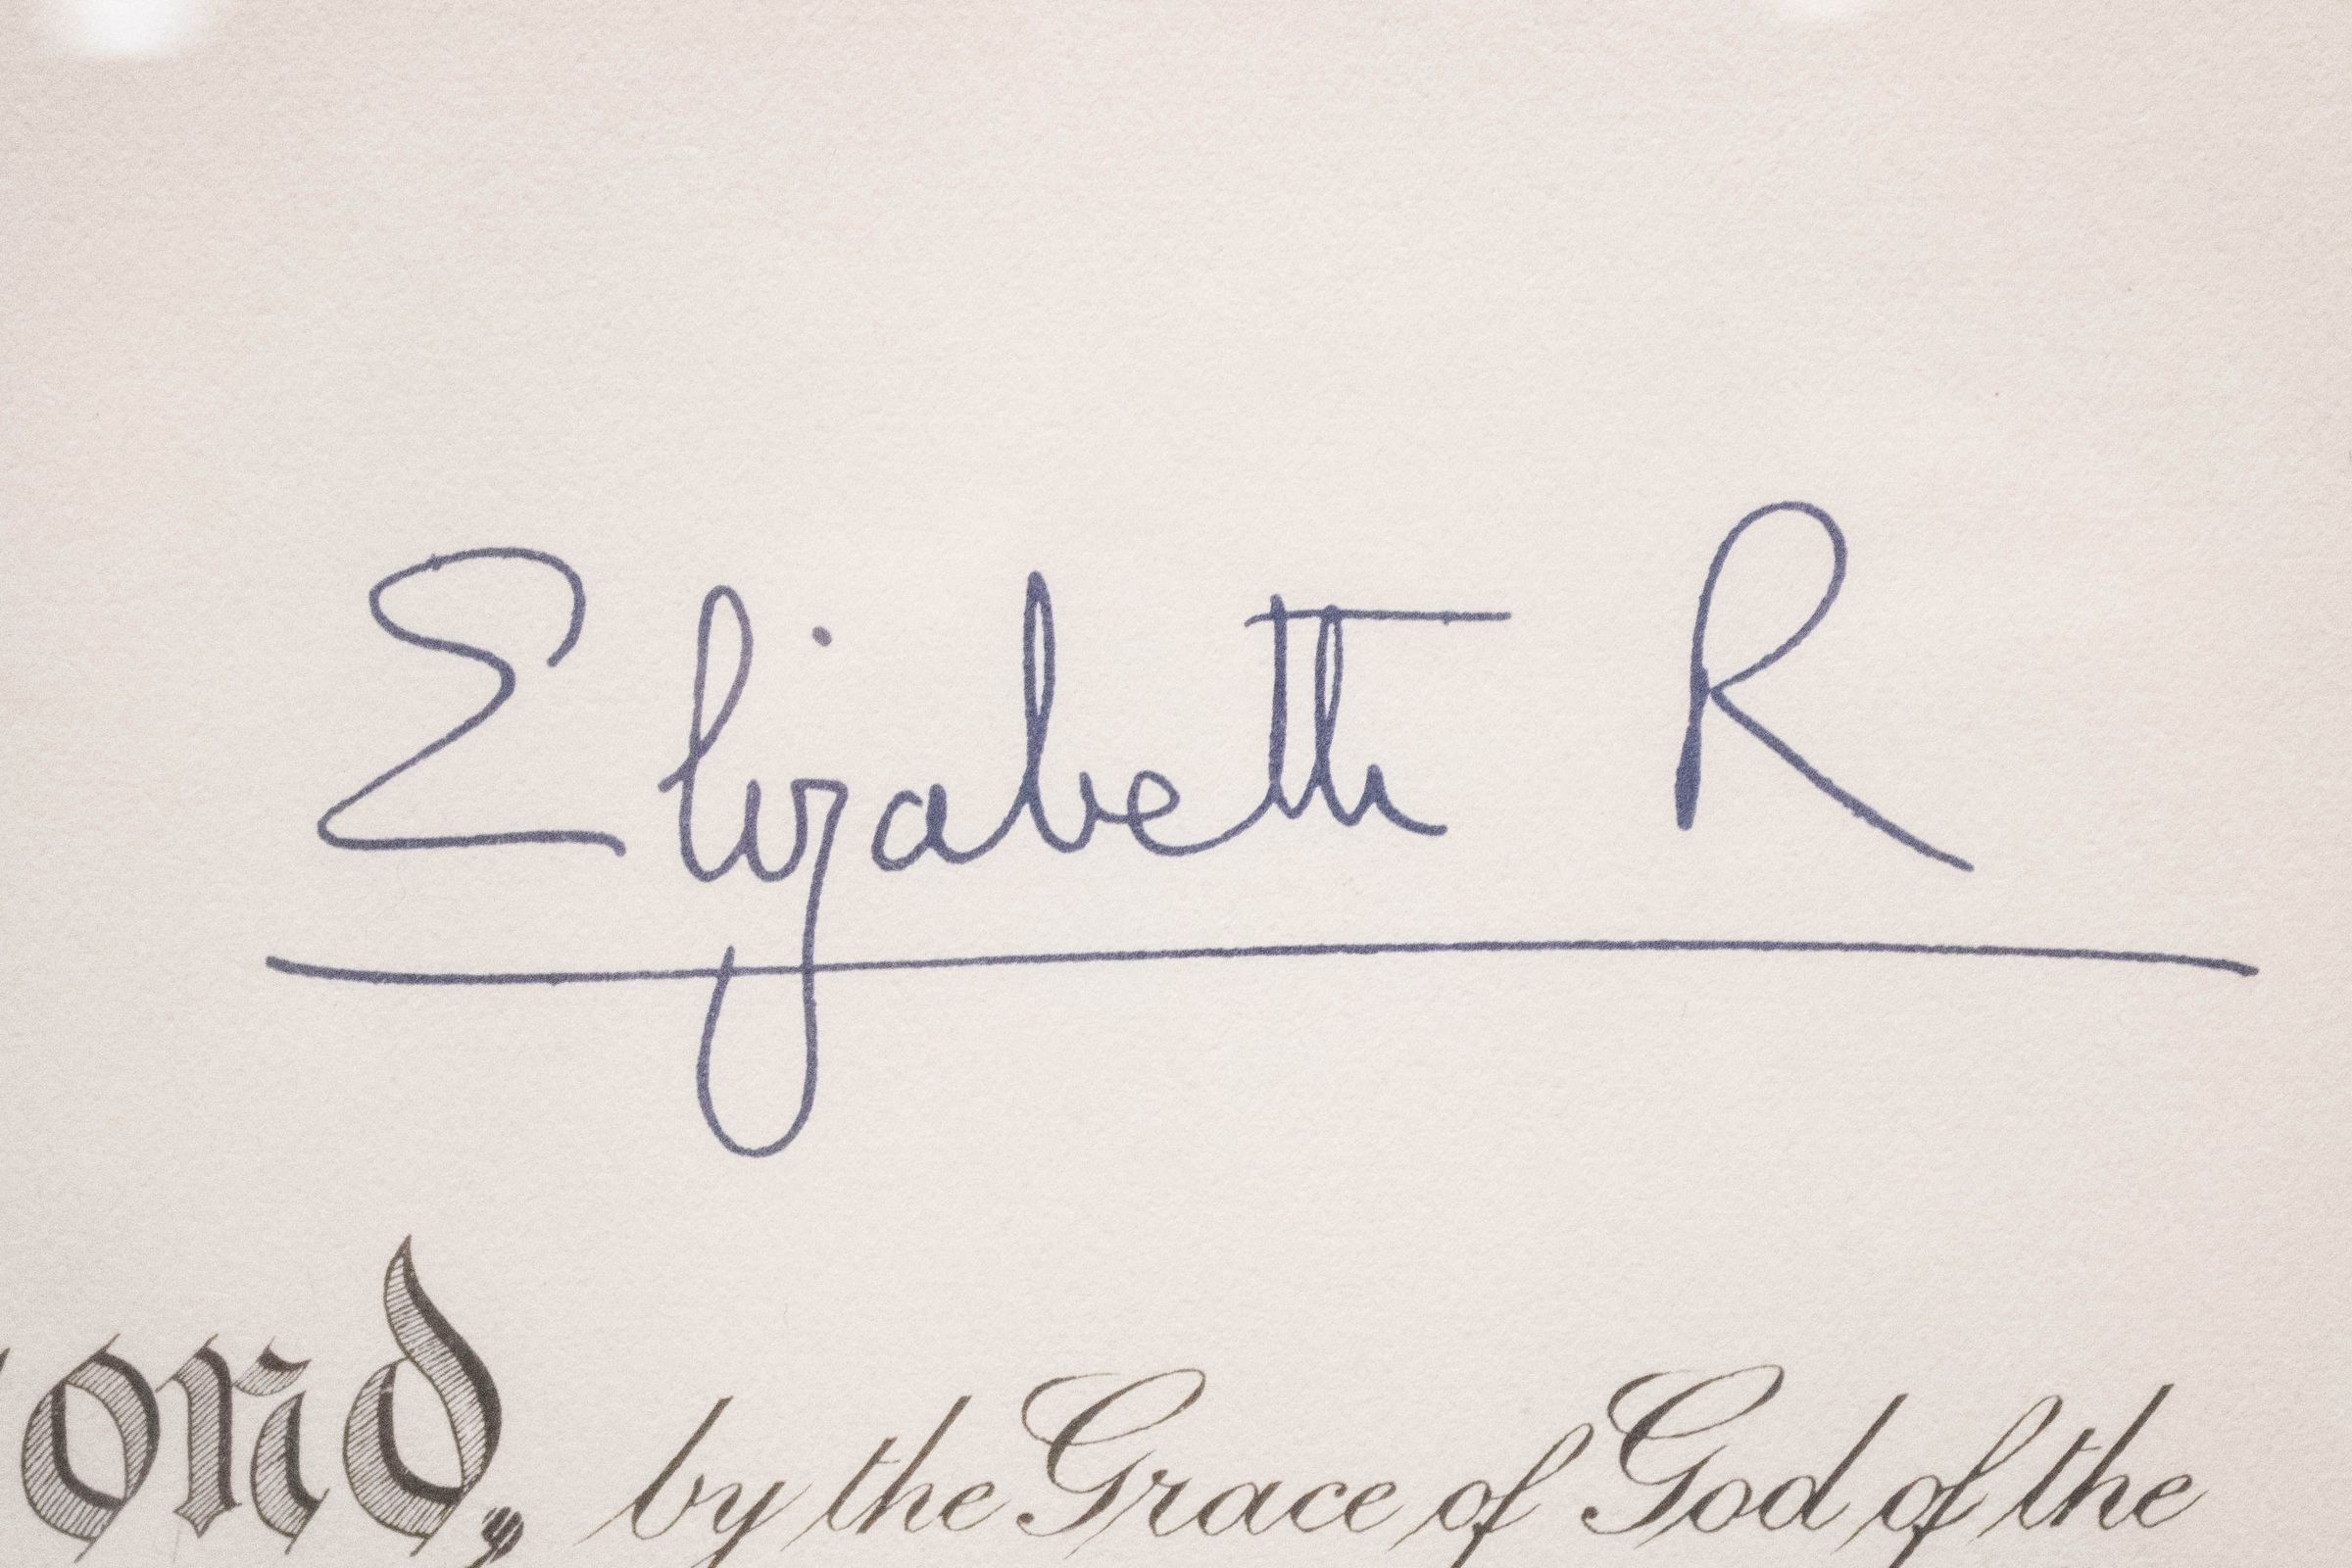 Elizabeth R
ond, by the Grace of God of the